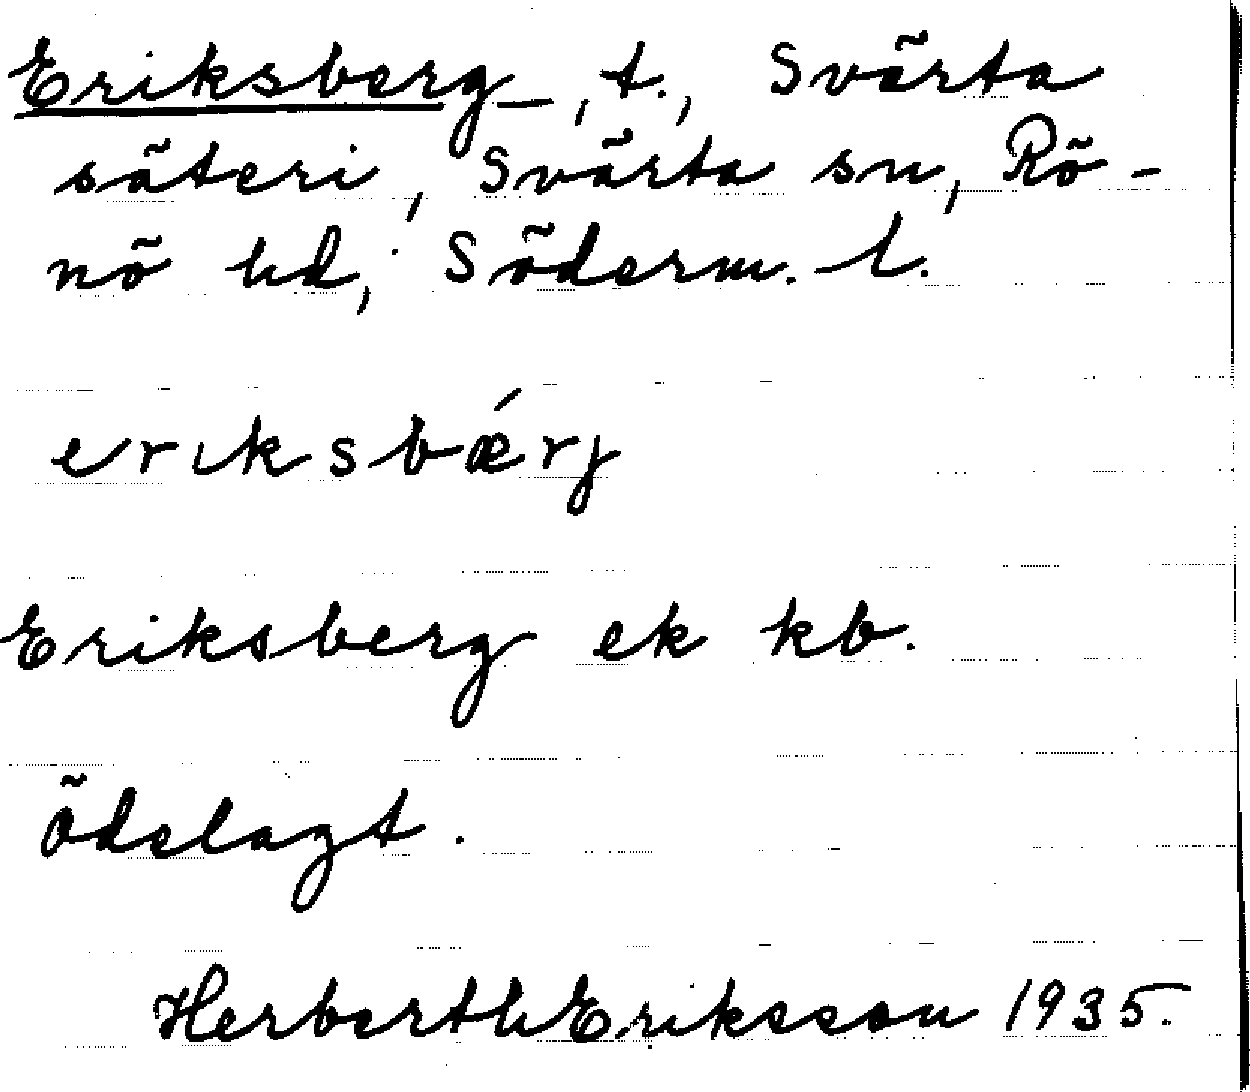 Eriksberg, t., Svärta
säteri, Svärta sn, Rö-
nö hd, Söderm. l.
erıksbǽrj
Eriksberg ek kb.
Ödelagt.
Herberth Eriksson 1935.